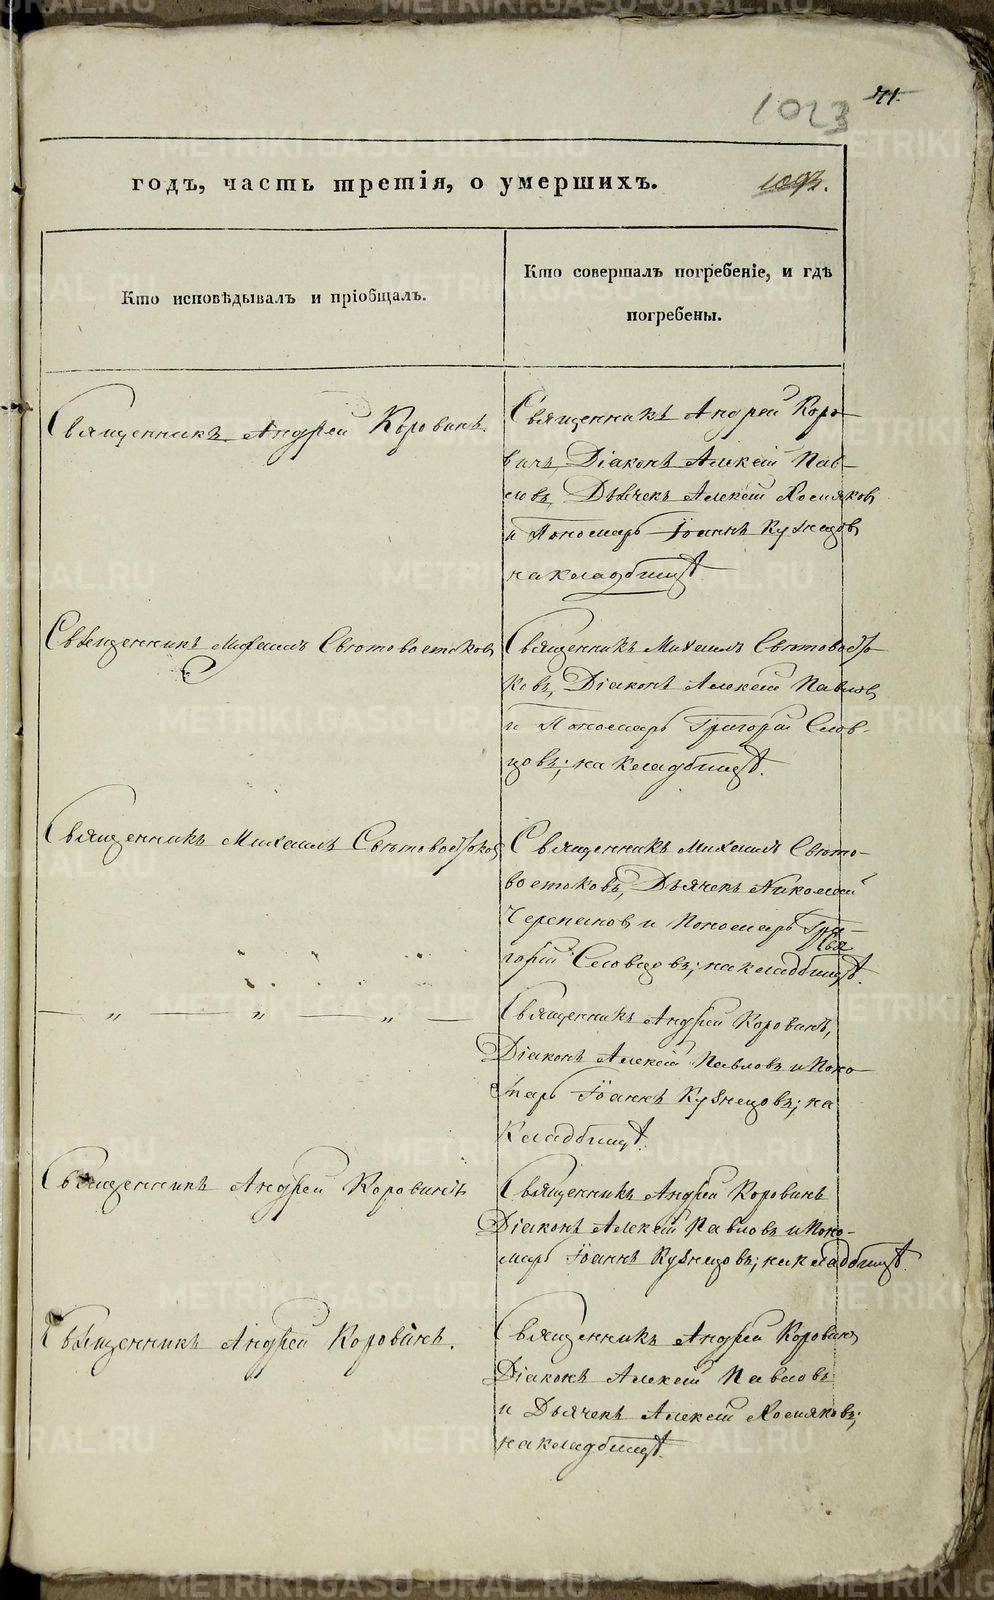 1023
71.
годъ, часть третія, о умершихъ.
Кто исповѣдывалъ и пріобщалъ.
Кто совершалъ погребеніе, и гдѣ
погребены.
Священникъ Андрей Коровинъ.
Священникъ Андрей Коро-
винъ, Діаконъ Алексій Пав-
ловъ, Дьячекъ Алексій Хосияковъ
и Пономарь Іоаннъ Кузнецовъ
на кладбищѣ
Священникъ Михаилъ Свѣтовостоковъ
Священникъ Михаилъ Свѣтовосто-
ковъ, Діаконъ Алексій Павловъ
и Пономарь Григорій Слов-
цовъ; на кладбищѣ.
Священникъ Михаилъ Свѣтовостоковъ
Священникъ Михаилъ Свѣто-
востоковъ, Дьячекъ Николай
Черепановъ и Пономарь Гри-
горій Словцовъ; на кладбищѣ.
— „ — „ — „ —
Священникъ Андрей Коровинъ,
Діаконъ Алексій Павловъ и Поно-
марь Іоаннъ Кузнецовъ; на
кладбищѣ.
Священникъ Андрей Коровинъ
Священникъ Андрей Коровинъ
Діаконъ Алексій Павловъ и Поно-
марь Іоаннъ Кузнецовъ; на кладбищѣ.
Священникъ Андрей Коровинъ.
Священникъ Андрей Коровинъ
Діаконъ Алексій Павловъ
и Дьячекъ Алексій Хосияковъ;
на кладбищѣ.
METRIKI.GASO-URAL.RU